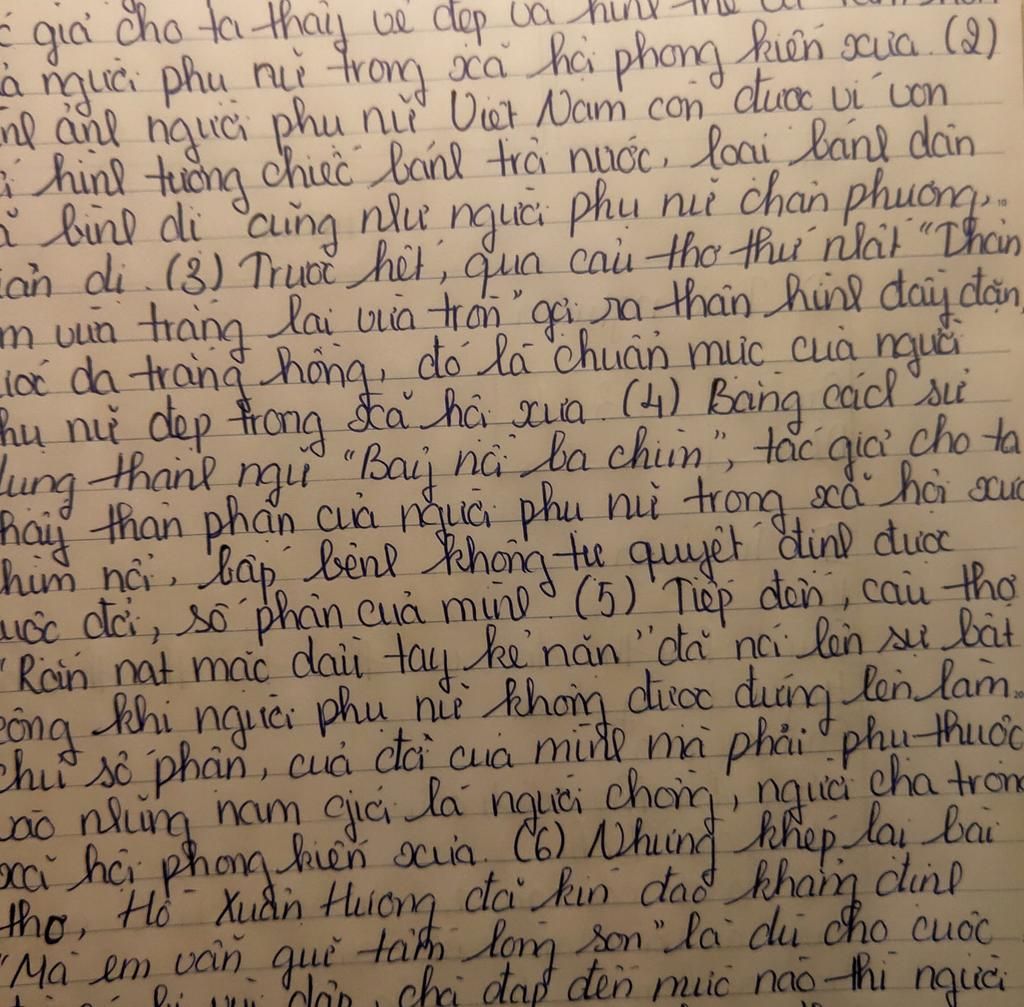 giả cho ta thấy vẻ đẹp và hình
người phụ nữ trong xã hội phong kiến xưa. (2)
ảnh người phụ nữ Việt Nam còn được ví von
hình tượng chiếc bánh trôi nước, loại bánh dân
bình dị cũng như người phụ nữ chân phương,
dị. (3) Trước hết, qua câu thơ thứ nhất "Thân
em vừa trắng lại vừa tròn" gợi ra thân hình đầy đặn,
da trắng hồng, đó là chuẩn mực của người
phụ nữ đẹp trong xã hội xưa. (4) Bằng cách sử
dụng thành ngữ "Bảy nổi ba chìm", tác giả cho ta
thấy thân phận của người phụ nữ trong xã hội xưa
chìm nổi, bấp bênh không tự quyết định được
cuộc đời, số phận của mình. (5) Tiếp đến, câu thơ
"Rắn nát mặc dầu tay kẻ nặn" đã nói lên sự bất
công khi người phụ nữ không được đứng lên làm
chủ số phận, cuả đời của mình mà phải phụ thuộc
vào những nam giới là người chồng, người cha trong
xã hội phong kiến xưa. (6) Nhưng khép lại bài
thơ, Hồ Xuân Hương đã kín đáo khẳng định
"Mà em vẫn giữ tấm lòng son" là dù cho cuộc
dập, chà đạp đến mức nào thì người